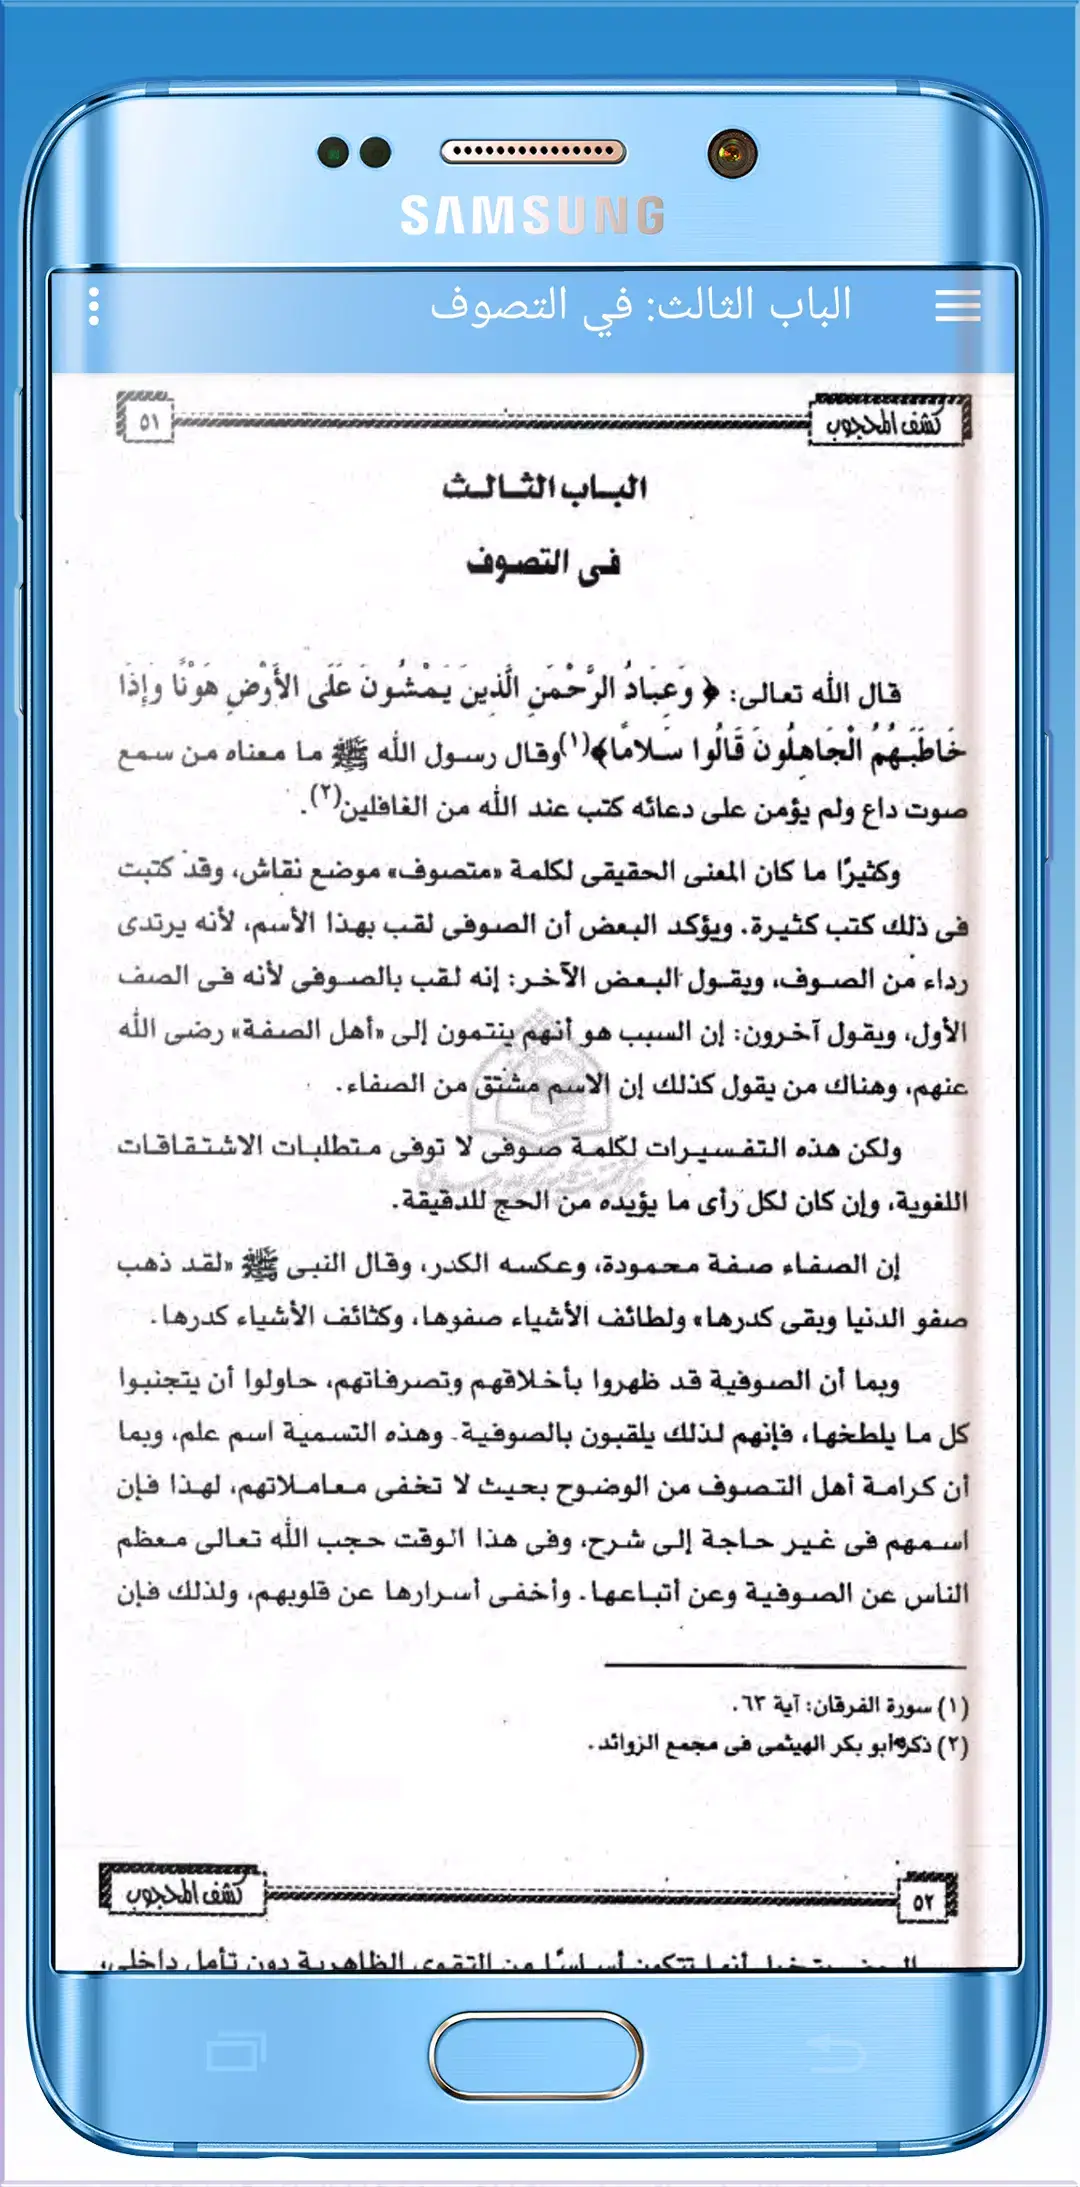 SAMSUNG
الباب الثالث: في التصوف
كشف المحجوب
٥١
الباب الثالث
فى التصوف
قال الله تعالى: ﴿ وَعِبَادُ الرَّحْمَنِ الَّذِينَ يَمْشُونَ عَلَى الأَرْضِ هَوْنًا وَإِذَا
خَاطَبَهُمُ الْجَاهِلُونَ قَالُوا سَلامًا﴾(١)وقال رسول الله ﷺ ما معناه من سمع
صوت داع ولم يؤمن على دعائه كتب عند الله من الغافلين(٢).
وكثيرًا ما كان المعنى الحقيقى لكلمة «متصوف» موضع نقاش، وقد كتبت
فى ذلك كتب كثيرة. ويؤكد البعض أن الصوفى لقب بهذا الأسم، لأنه يرتدى
رداء من الصوف، ويقول البعض الآخر: إنه لقب بالصوفى لأنه فى الصف
الأول، ويقول آخرون: إن السبب هو أنهم ينتمون إلى «أهل الصفة» رضى الله
عنهم، وهناك من يقول كذلك إن الاسم مشتق من الصفاء.
ولكن هذه التفسيرات لكلمة صوفى لا توفى متطلبات الاشتقاقات
اللغوية، وإن كان لكل رأى ما يؤيده من الحج للدقيقة.
إن الصفاء صفة محمودة، وعكسه الكدر، وقال النبى ﷺ «لقد ذهب
صفو الدنيا وبقى كدرها» ولطائف الأشياء صفوها، وكثائف الأشياء كدرها.
وبما أن الصوفية قد ظهروا بأخلاقهم وتصرفاتهم، حاولوا أن يتجنبوا
كل ما يلطخها، فإنهم لذلك يلقبون بالصوفية. وهذه التسمية اسم علم، وبما
أن كرامة أهل التصوف من الوضوح بحيث لا تخفى معاملاتهم، لهذا فإن
اسمهم فى غير حاجة إلى شرح، وفى هذا الوقت حجب الله تعالى معظم
الناس عن الصوفية وعن أتباعها. وأخفى أسرارها عن قلوبهم، ولذلك فإن
(١) سورة الفرقان: آية ٦٣.
(٢) ذكره أبو بكر الهيثمى فى مجمع الزوائد.
٥٢
كشف المحجوب
أنها تتكون أساسًا من التقوى الظاهرية دون تأمل داخلى،